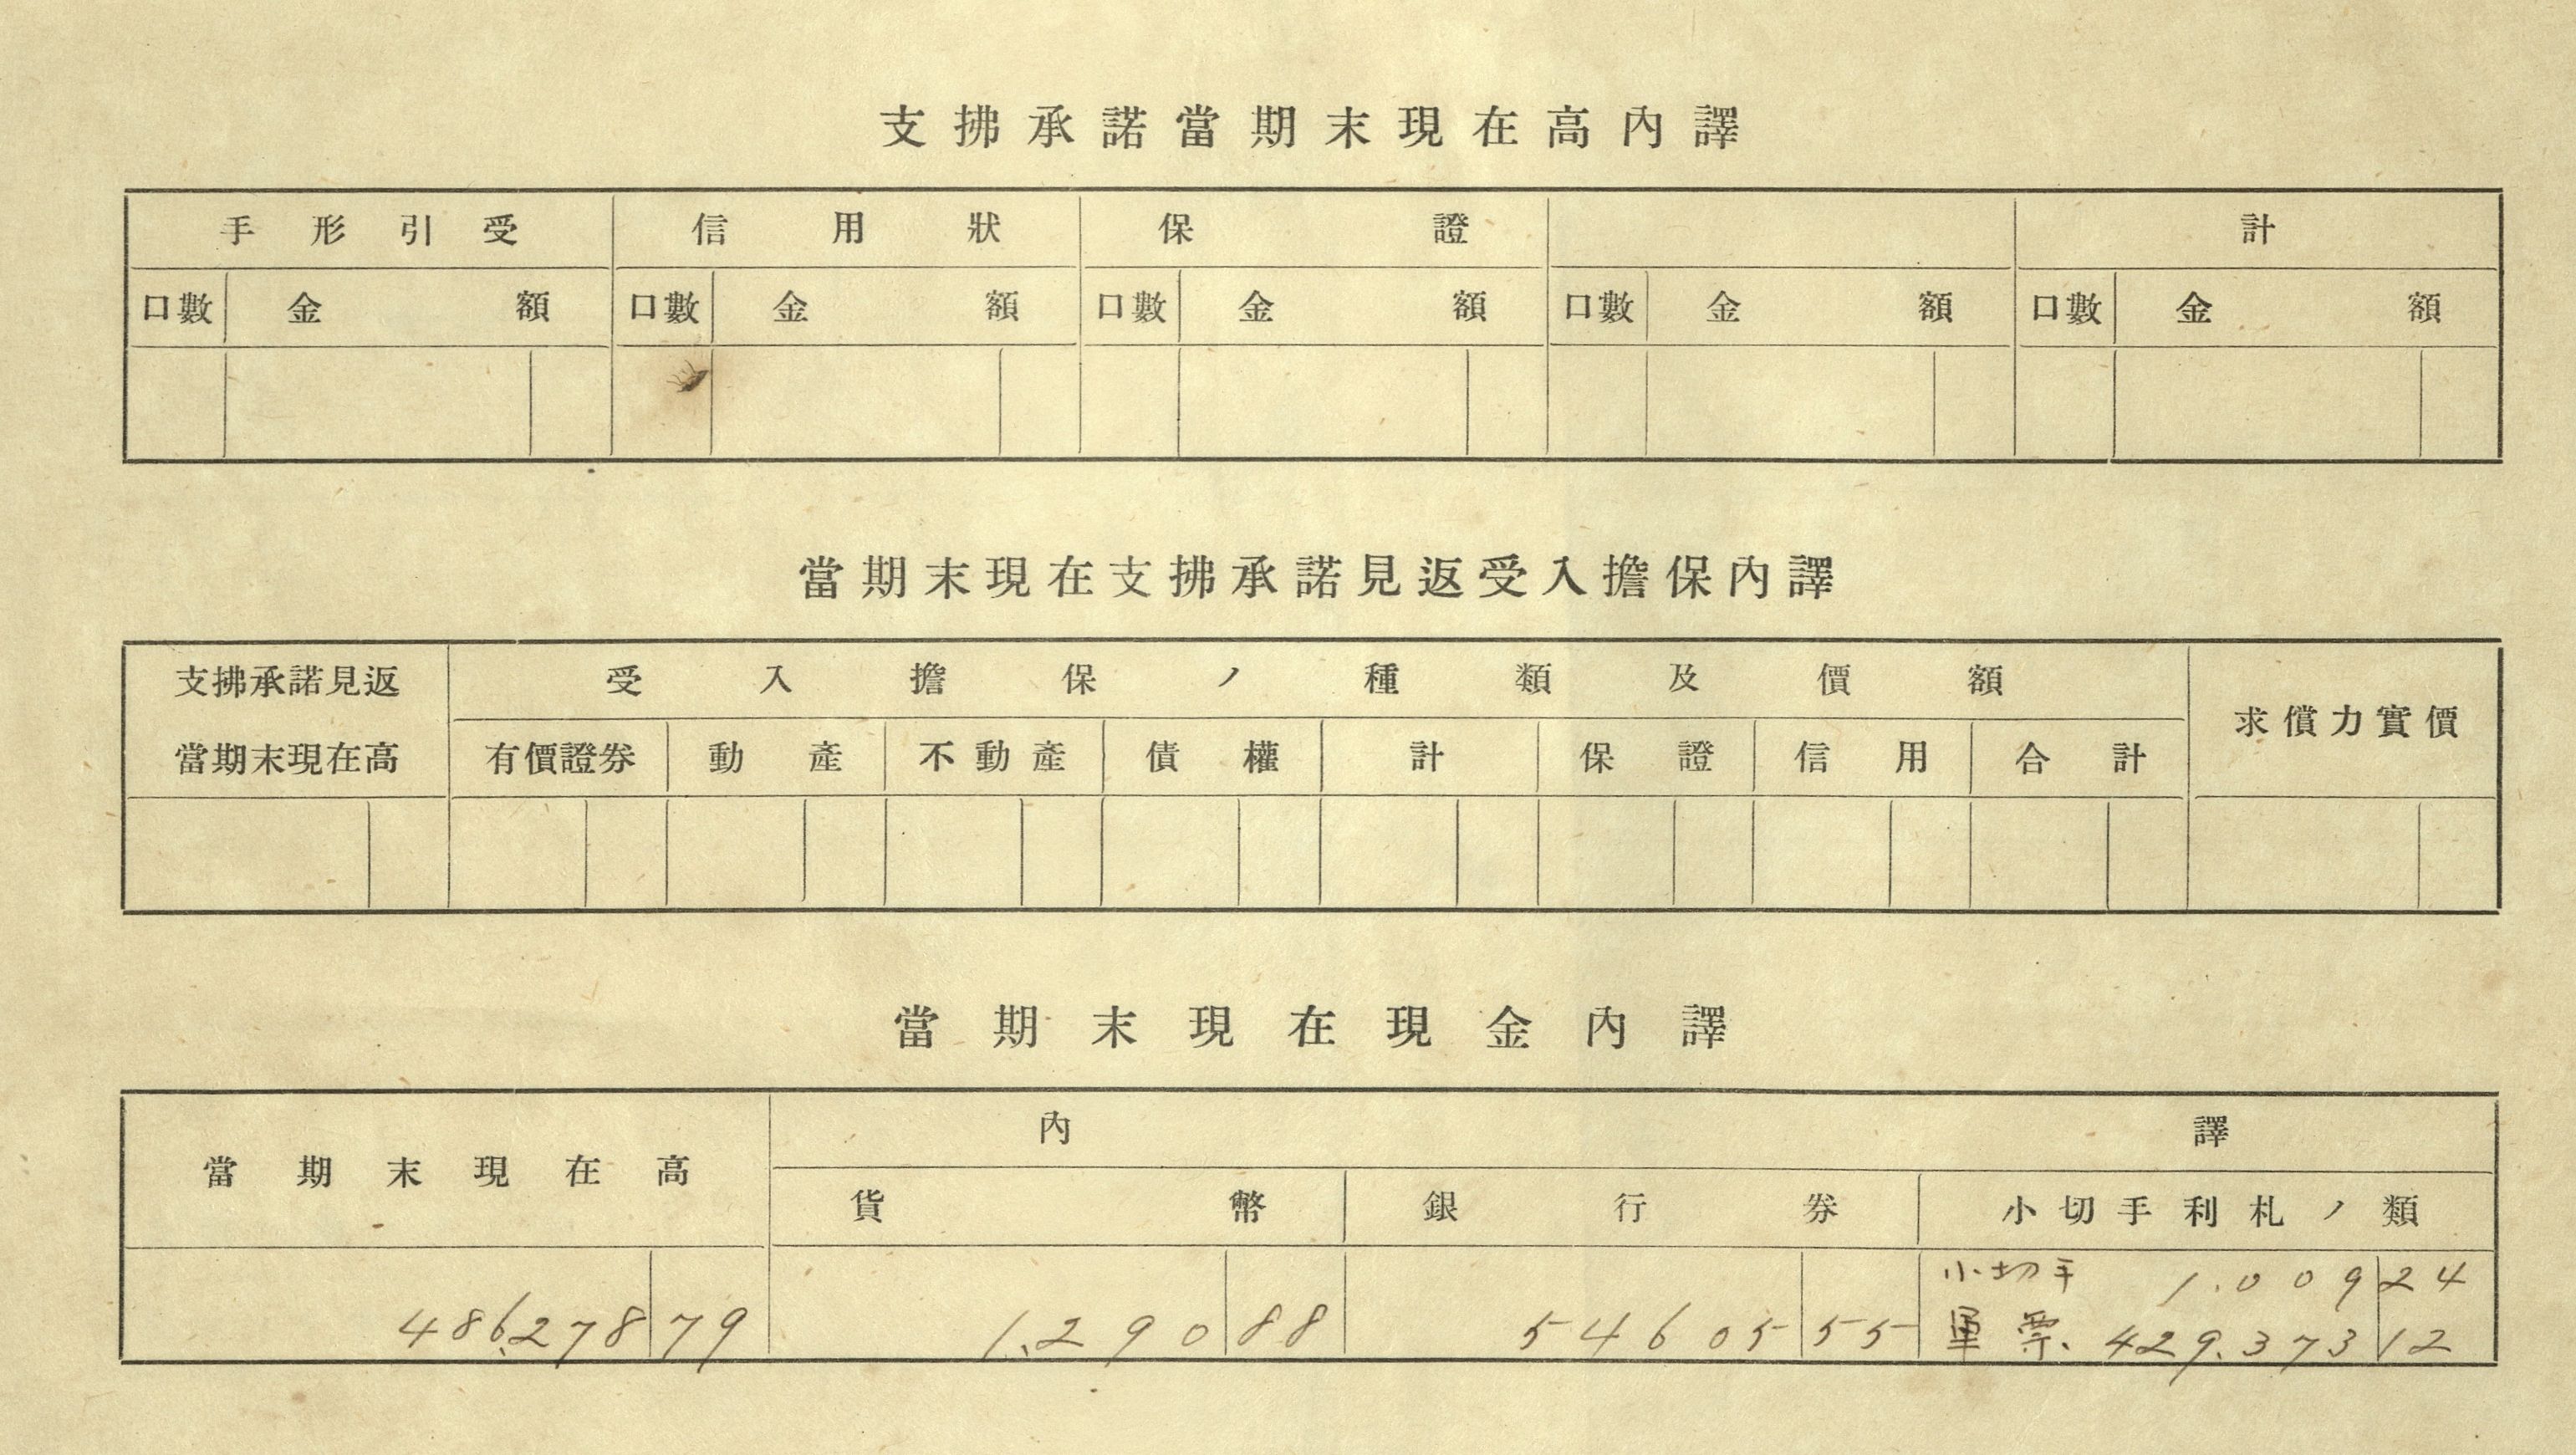 支拂承諾當期末現在高內譯
手形引受 信用狀 保證 計
口數 金額 口數 金額 口數 金額 口數 金額 口數 金額
當期末現在支拂承諾見返受入擔保內譯
支拂承諾見返 受入擔保ノ種類及價額
求償力實價
當期末現在高 有價證券 動產 不動產 債權 計 保證 信用 合計
當期末現在現金內譯
內譯
當期末現在高
貨幣 銀行券 小切手利札ノ類
小切手 1.009 24
486.278 79 1.290 88 54605 55 軍票. 429.373 12